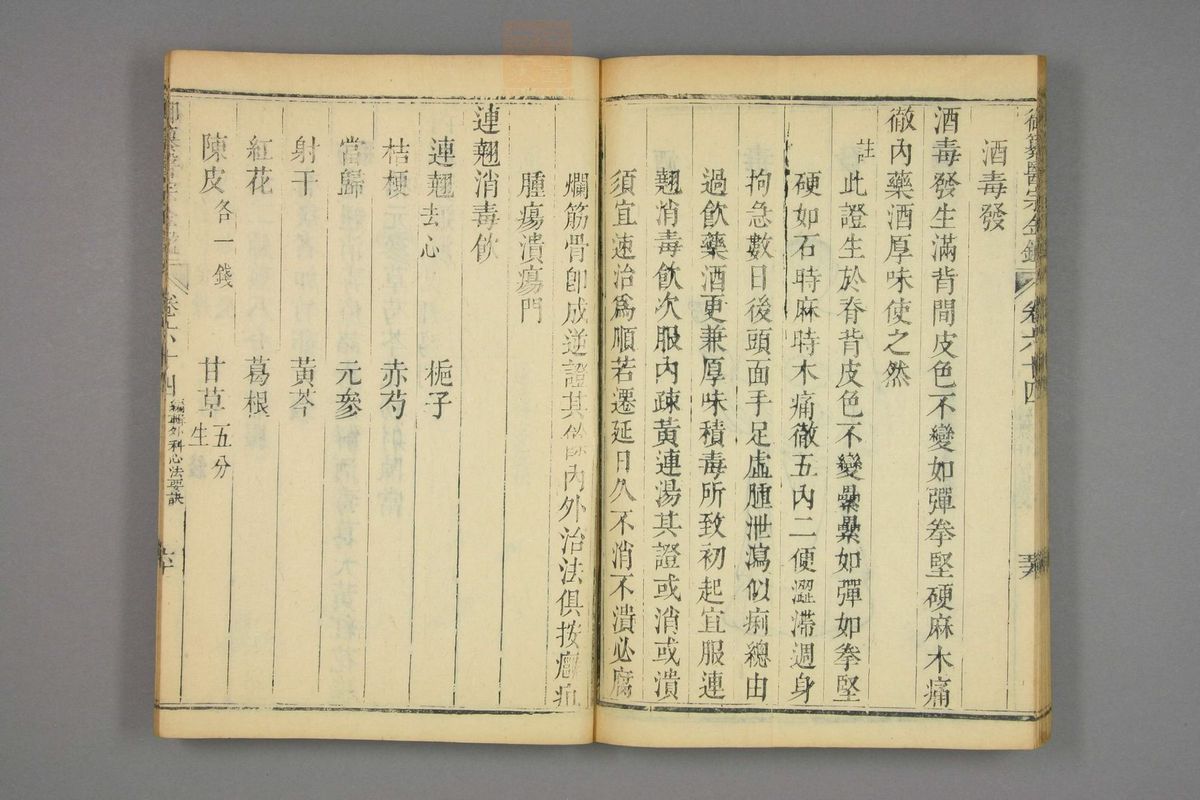 御纂醫宗金鑑
卷六十四
酒毒發
酒毒發生滿背間皮色不變如彈拳堅硬麻木痛
徹內藥酒厚味使之然
註此證生於脊背皮色不變纍纍如彈如拳堅
硬如石時麻時木痛徹五內二便澀滯週身
拘急數日後頭面手足虛腫泄瀉似痢總由
過飲藥酒更兼厚味積毒所致初起宜服連
翹消毒飲次服內疎黃連湯其證或消或潰
須宜速治爲順若遷延日久不消不潰必腐
爛筋骨卽成逆證其餘內外治法俱按癰疽
腫瘍潰瘍門
連翹消毒飲
連翹去心 梔子
桔梗 赤芍
當歸 元參
射干 黃芩
紅花 葛根
陳皮各一錢 甘草生五分
御纂醫宗金鑑
卷六十四
編輯外科心法要訣